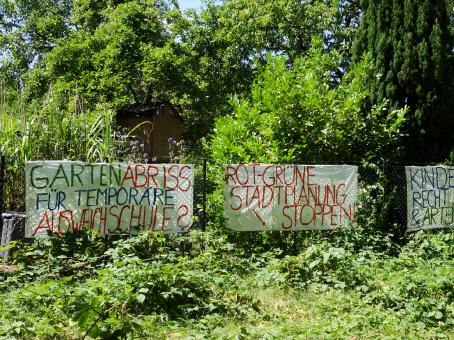 GARTENABRISS
FÜR TEMPORÄRE
AUSWEICHSCHULE?
ROT-GRÜNE
STADTPLANUNG
STOPPEN!
KINDE
RECHT
& ARTEN